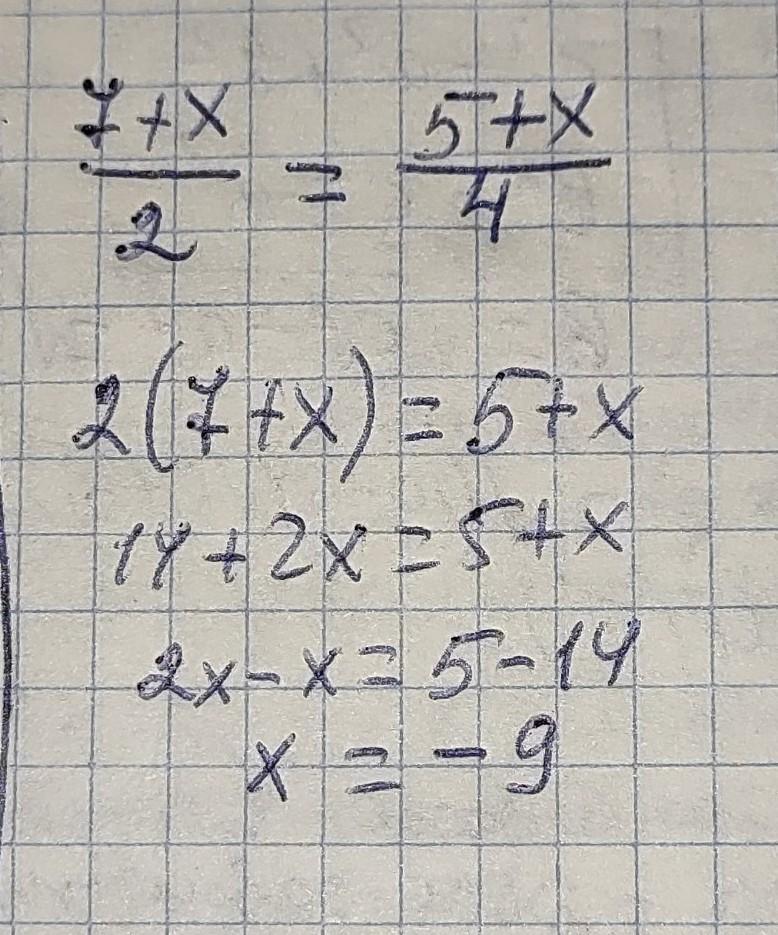 7+x/2 = 5+x/4
2(7+x)=5+x
14+2x=5+x
2x-x=5-14
x=-9